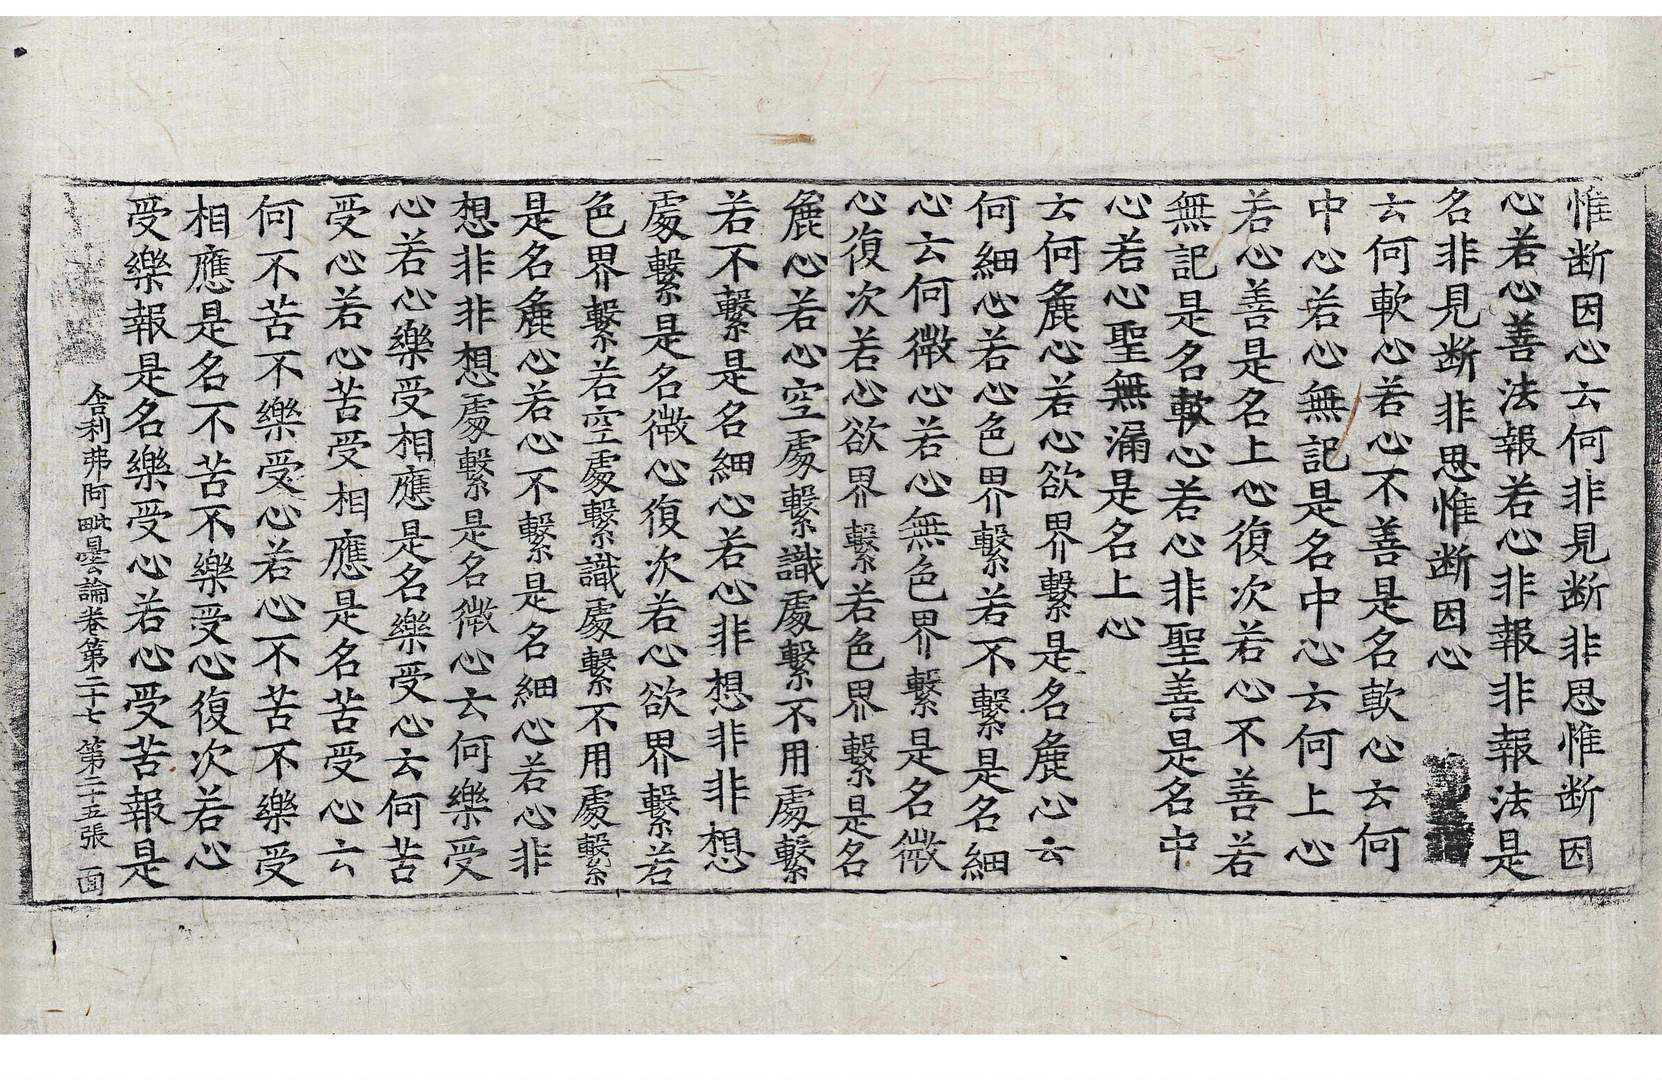 惟断因心云何非見断非思惟断因
心若心善法報若心非報非報法是
名非見断非思惟断因心
云何軟心若心不善是名軟心云何
中心若心無記是名中心云何上心
若心善是名上心復次若心不善若
無記是名軟心若心非聖善是名中
心若心聖無漏是名上心
云何麁心若心欲界繫是名麁心云
何細心若心色界繫若不繫是名細
心云何微心若心無色界繫是名微
心復次若心欲界繫若色界繫是名
麁心若心空處繫識處繫不用處繫
若不繫是名細心若心非想非非想
處繫是名微心復次若心欲界繫若
色界繫若空處繫識處繫不用處繫
是名麁心若心不繫是名細心若心非
想非非想處繫是名微心云何樂受
心若心樂受相應是名樂受心云何苦
受心若心苦受相應是名苦受心云
何不苦不樂受心若心不苦不樂受
相應是名不苦不樂受心復次若心
受樂報是名樂受心若心受苦報是
舍利弗阿毗曇論卷第二十七 第二十五張 面